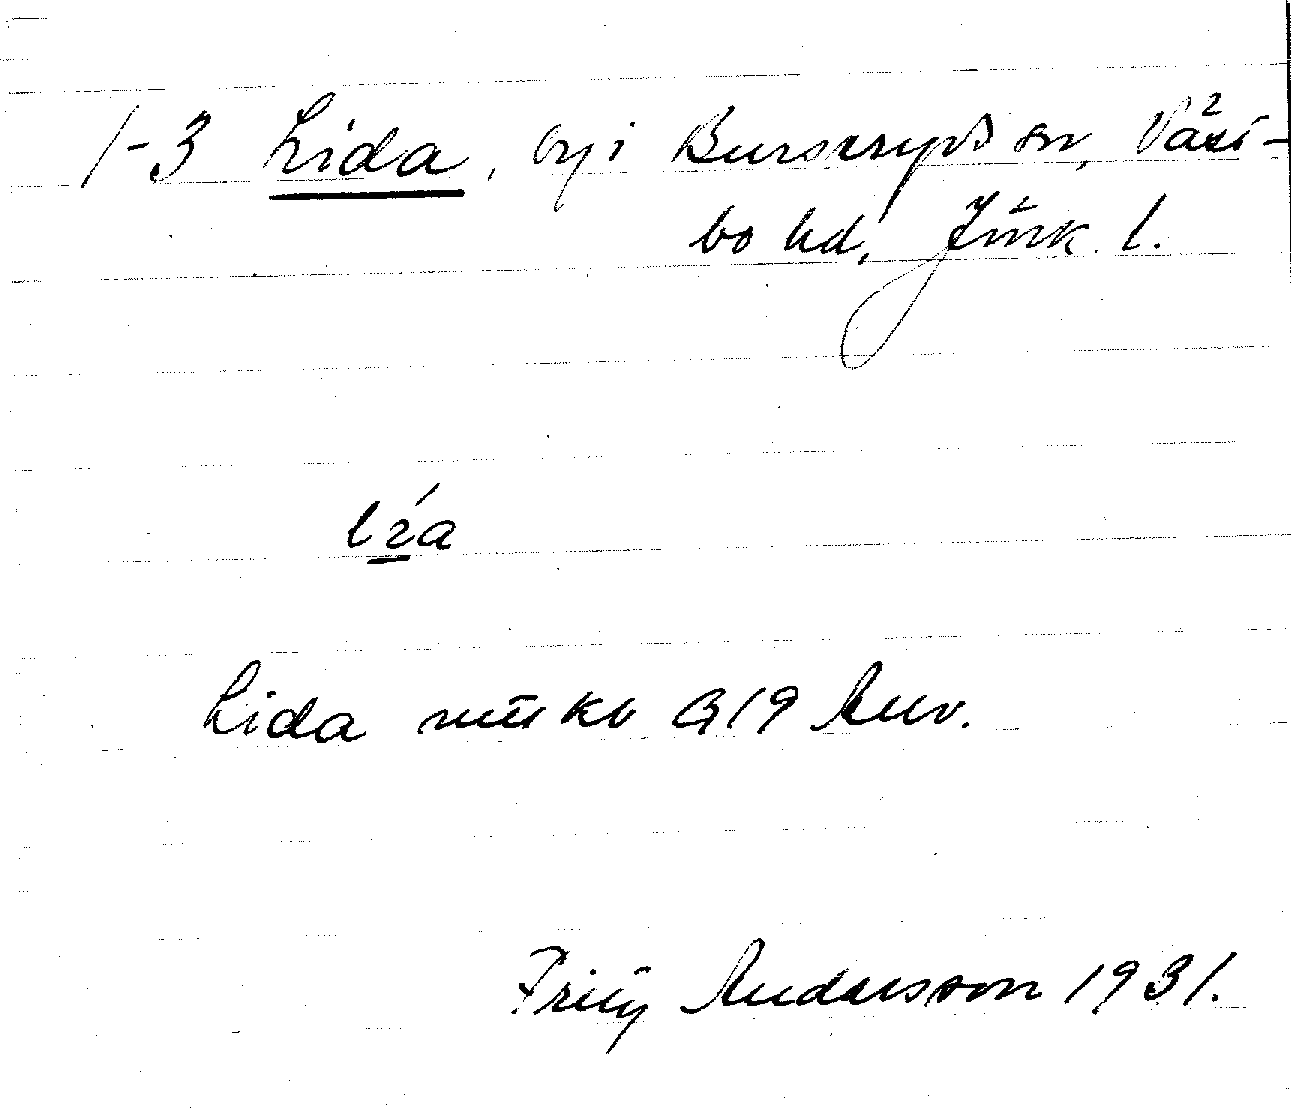 1-3 Lida, by i Burseryds sn, Västbo hd, Jönk. l.
lía
Lida 1919 Anv.
Fritz Andersson 1931.